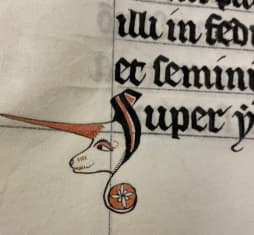 illi in fedi
et semini
Super ẏ